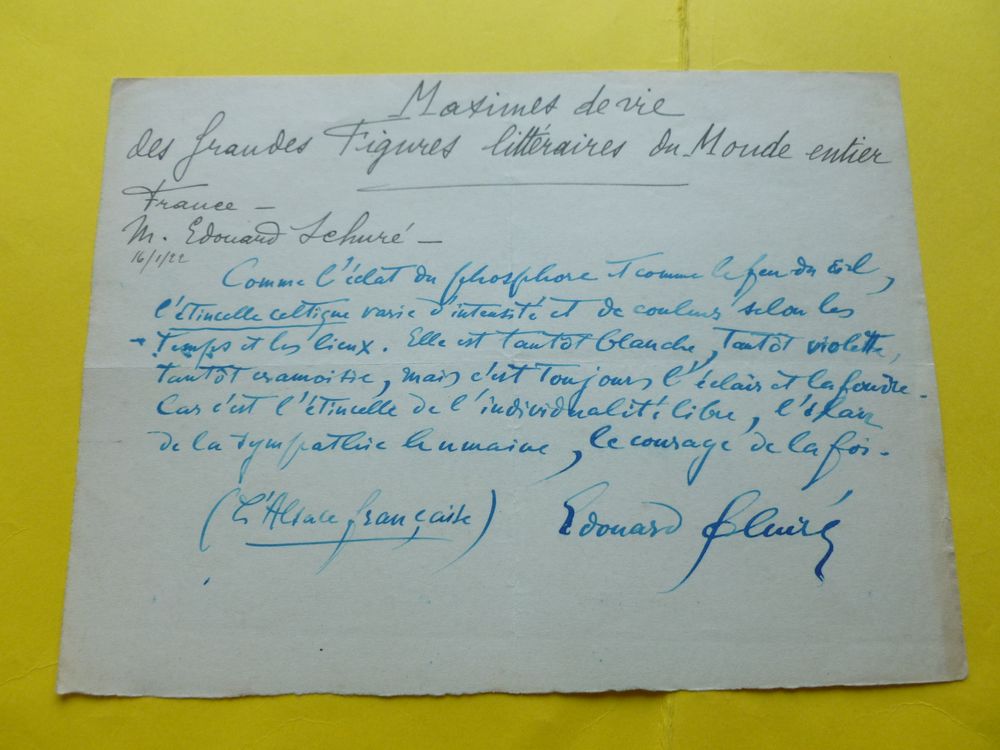 Maximes de vie
des Grandes Figures littéraires du Monde entier
France —
M. Edouard Schuré —
16/1/22
Comme l'éclat du phosphore et comme le feu du ciel,
l'étincelle celtique varie d'intensité et de couleur selon les
temps et les lieux. Elle est tantôt blanche, tantôt violette,
tantôt cramoisie, mais c'est toujours l'éclair et la foudre.
Car c'est l'étincelle de l'individualité libre, l'élan
de la sympathie humaine, le courage de la foi.
(L'Alsace française)
Edouard Schuré